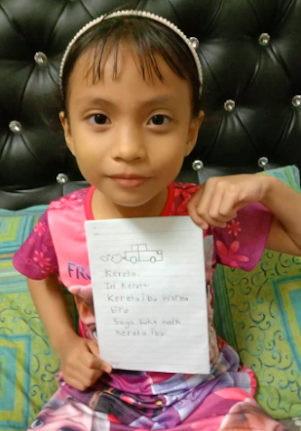 Kereta.
Ini kereta.
Kereta ibu warna
biru
Saya suka naik
kereta ibu
FR